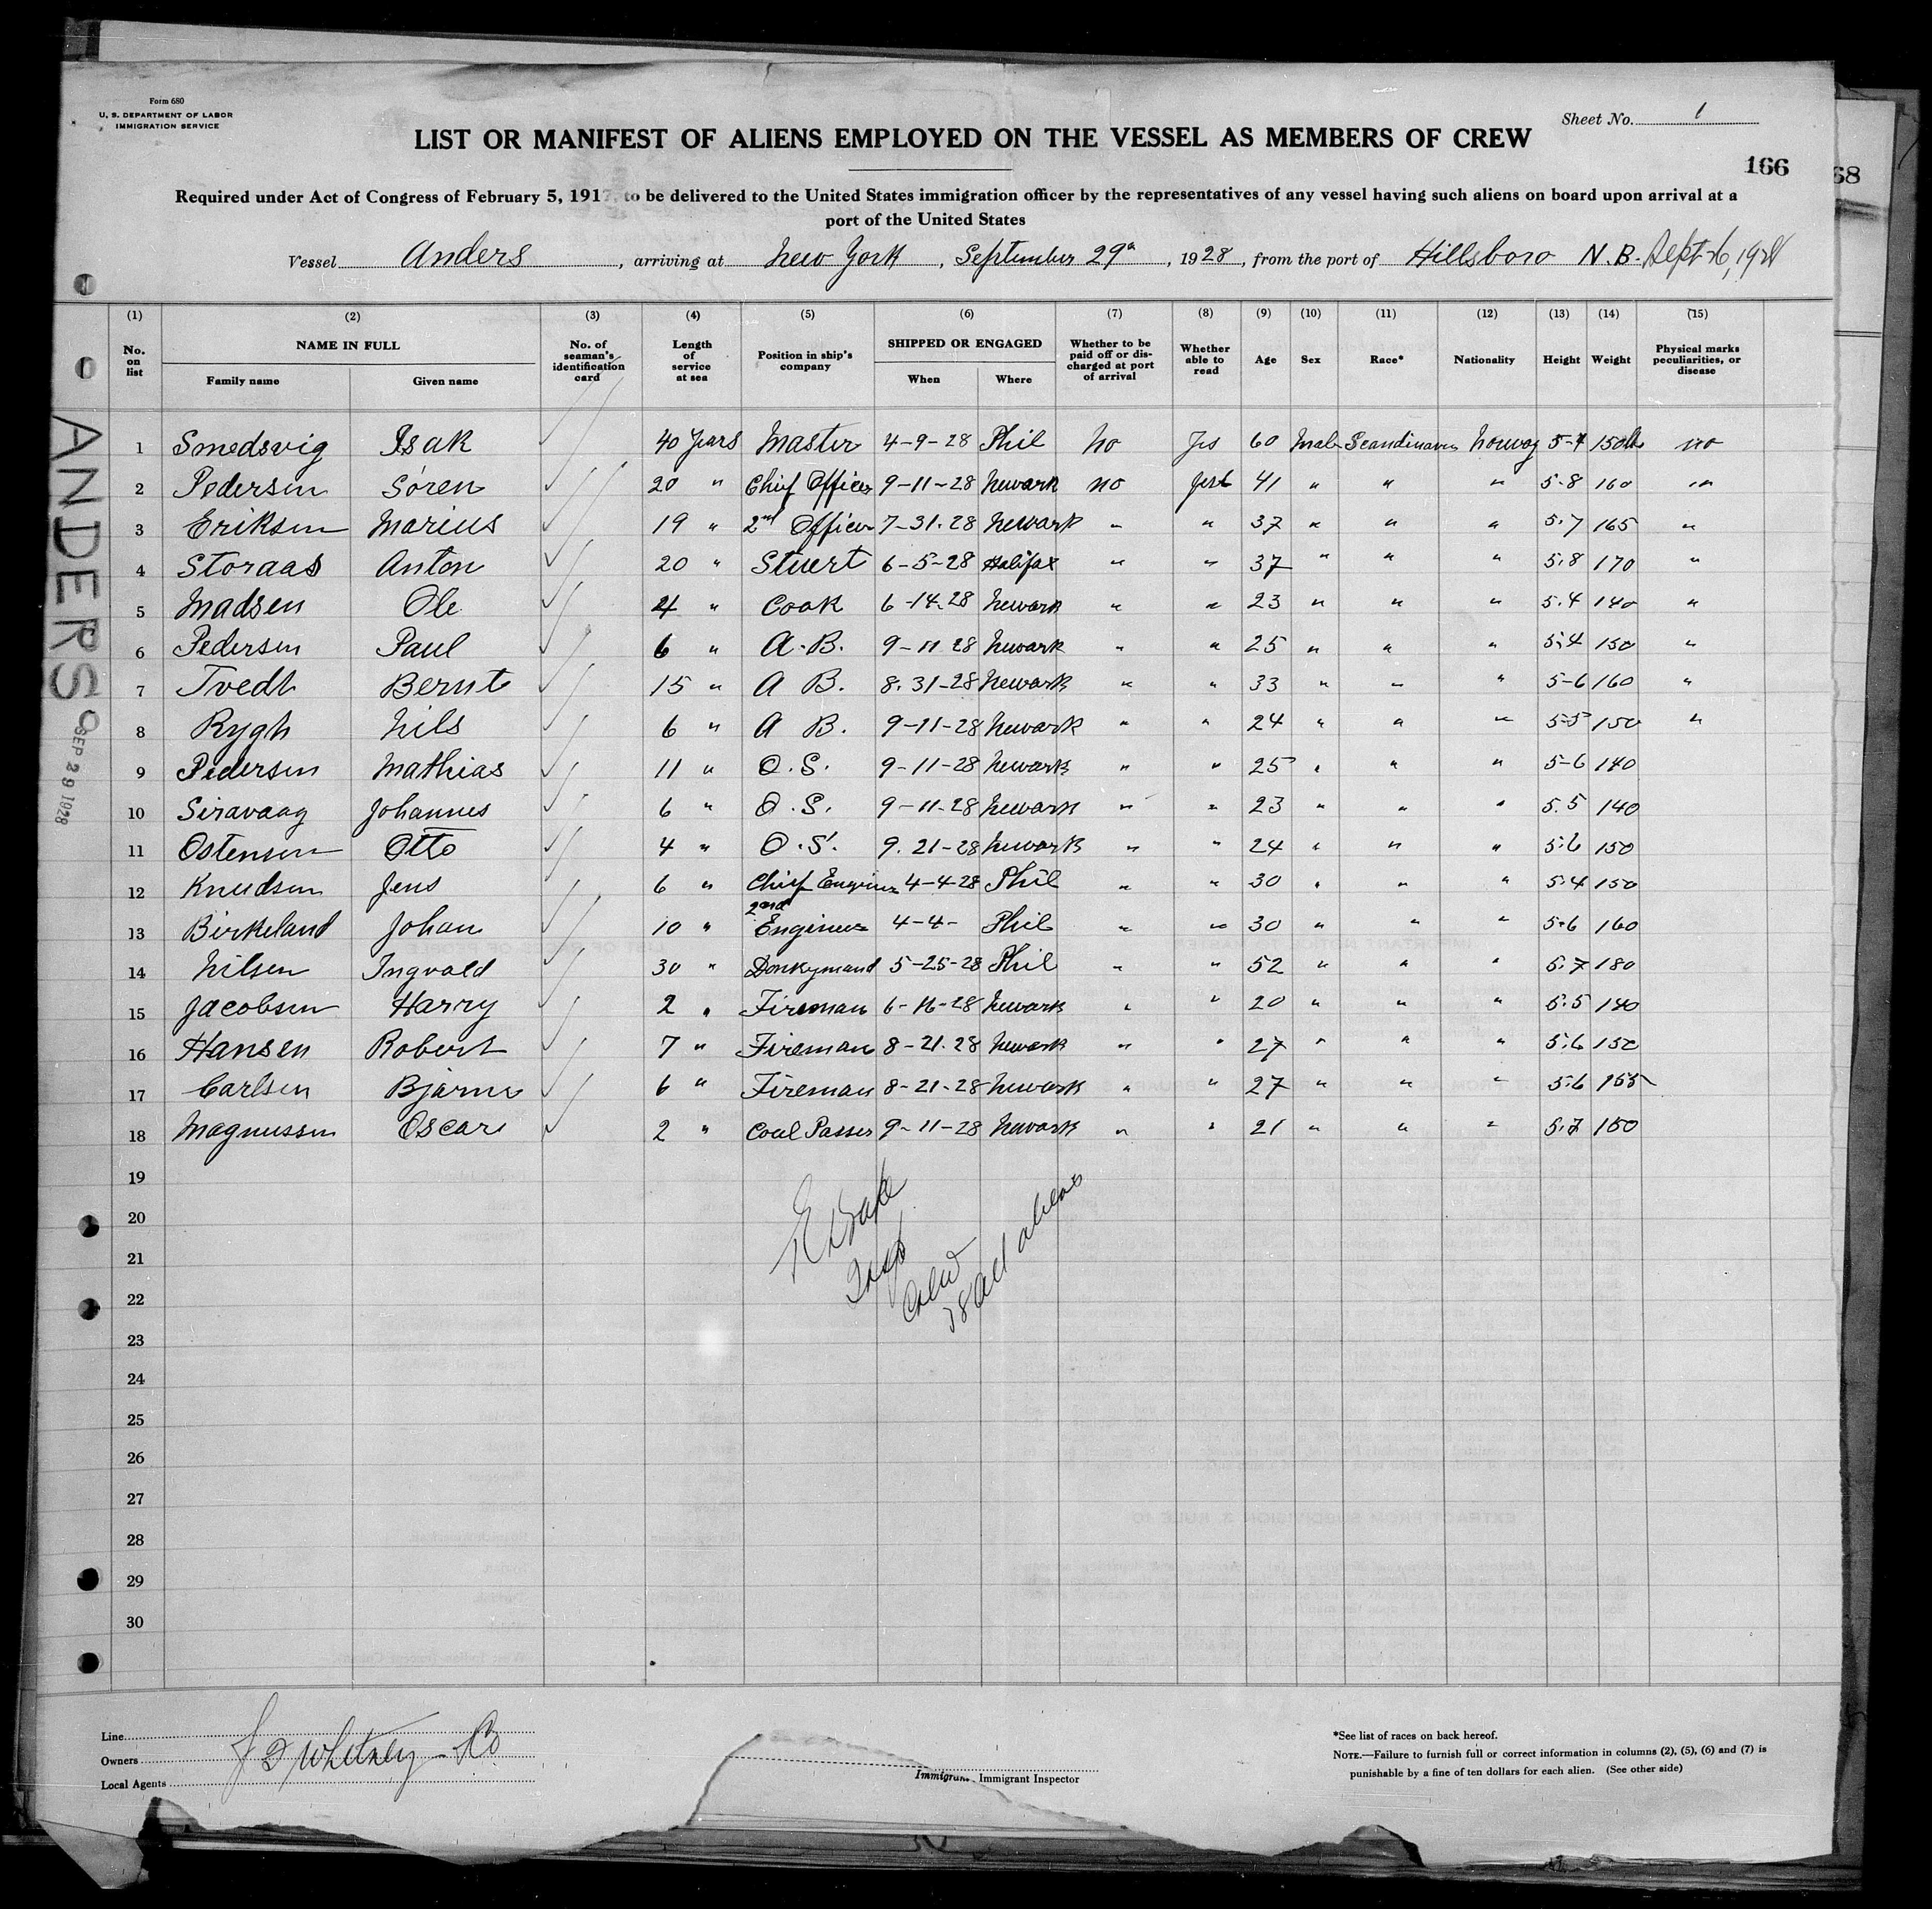 Form 680
U. S. DEPARTMENT OF LABOR
IMMIGRATION SERVICE
Sheet No. 1
LIST OR MANIFEST OF ALIENS EMPLOYED ON THE VESSEL AS MEMBERS OF CREW
166
68
Required under Act of Congress of February 5, 1917, to be delivered to the United States immigration officer by the representatives of any vessel having such aliens on board upon arrival at a
port of the United States
Vessel Anders, arriving at New York, September 29th, 1928, from the port of Hillsboro N.B. Sept 26, 1928
(1) (2) (3) (4) (5) (6) (7) (8) (9) (10) (11) (12) (13) (14) (15)
No. on list NAME IN FULL Family name Given name No. of seaman's identification card Length of service at sea Position in ship's company SHIPPED OR ENGAGED When Where Whether to be paid off or discharged at port of arrival Whether able to read Age Sex Race* Nationality Height Weight Physical marks peculiarities, or disease
1 Smedsvig Isak 40 Years Master 4-9-28 Phil No Yes 60 Male Scandinavian Norway 5-7 150 lb no
2 Pedersen Sören 20 " Chief Officer 9-11-28 Newark no Yes 41 " " " 5-8 160 "
3 Eriksen Marius 19 " 2nd Officer 7-31-28 Newark " " 37 " " " 5.7 165 "
4 Storaas Anton 20 " Stuert 6-5-28 Halifax " " 37 " " " 5.8 170 "
5 Madsen Ole 4 " Cook 6-14-28 Newark " " 23 " " " 5.4 140 "
6 Pedersen Paul 6 " A.B. 9-11 28 Newark " " 25 " " " 5.4 150 "
7 Tvedt Bernt 15 " A B. 8.31-28 Newark " " 33 " " " 5-6 160 "
8 Rygh Nils 6 " A B. 9-11-28 Newark " " 24 " " " 5-5 150 "
9 Pedersen Mathias 11 " O.S. 9-11-28 Newark " " 25 " " " 5-6 140
10 Siravaag Johannes 6 " O.S. 9-11-28 Newark " " 23 " " " 5.5 140
11 Ostensen Otto 4 " O.S. 9.21-28 Newark " " 24 " " " 5.6 150
12 Knudsen Jens 6 " Chief Engineer 4-4-28 Phil " " 30 " " " 5.4 150
13 Birkeland Johan 10 " 2nd Engineer 4-4- Phil " " 30 " " " 5-6 160
14 Nilsen Ingvald 30 " Donkymand 5-25-28 Phil " " 52 " " " 5.7 180
15 Jacobsen Harry 2 " Fireman 6-16-28 Newark " " 20 " " " 5.5 140
16 Hansen Robert 7 " Fireman 8-21-28 Newark " " 27 " " " 5.6 150
17 Carlsen Bjarne 6 " Fireman 8-21-28 Newark " " 27 " " " 5.6 155
18 Magnussen Oscar 2 " Coal Passer 9-11-28 Newark " " 21 " " " 5.7 150
19
20
21
22
23
24
25
26
27
28
29
30
Drake
Insp
Crew
18 all aliens
ANDERS
SEP 29 1928
Line
Owners J F Whitney Co
Local Agents
Immigrant Inspector
*See list of races on back hereof.
NOTE.—Failure to furnish full or correct information in columns (2), (5), (6) and (7) is
punishable by a fine of ten dollars for each alien. (See other side)